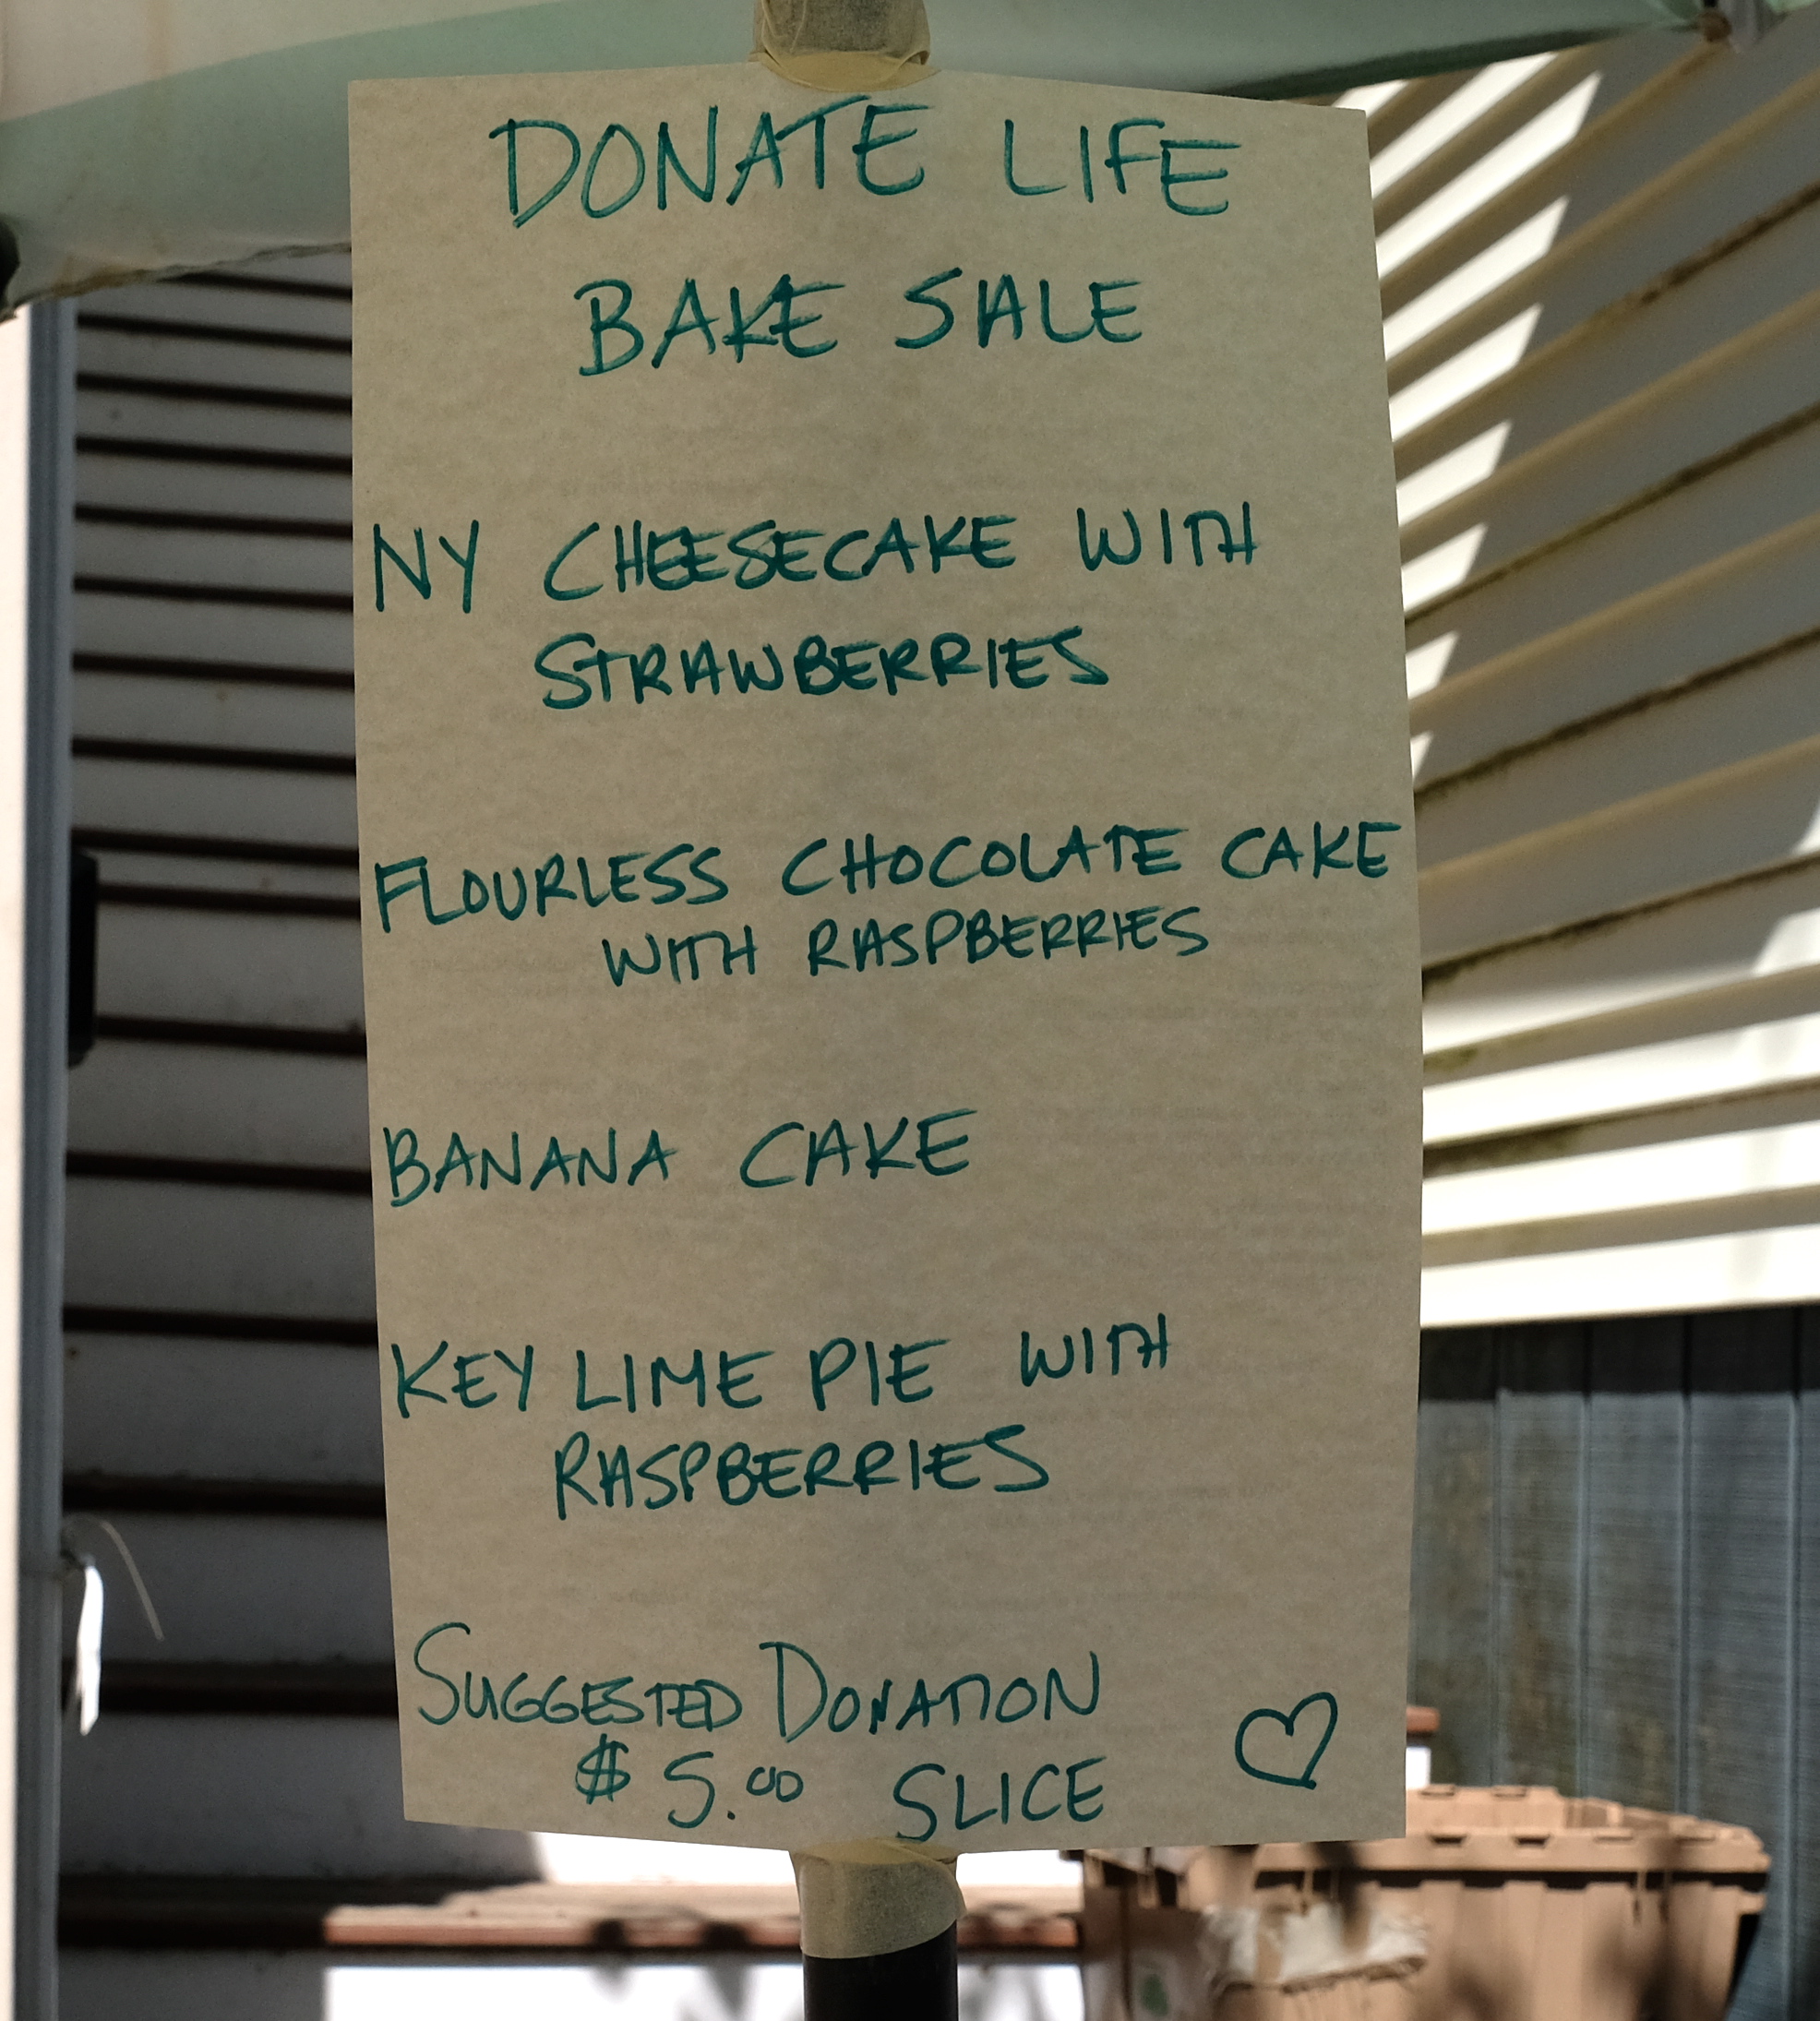 DONATE LIFE
BAKE SALE
NY CHEESECAKE WITH
STRAWBERRIES
FLOURLESS CHOCOLATE CAKE
WITH RASPBERRIES
BANANA CAKE
KEY LIME PIE WITH
RASPBERRIES
SUGGESTED DONATION
$5.00 SLICE